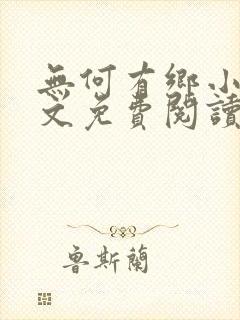 無何有鄉小
文免費閱讀
魯斯蘭